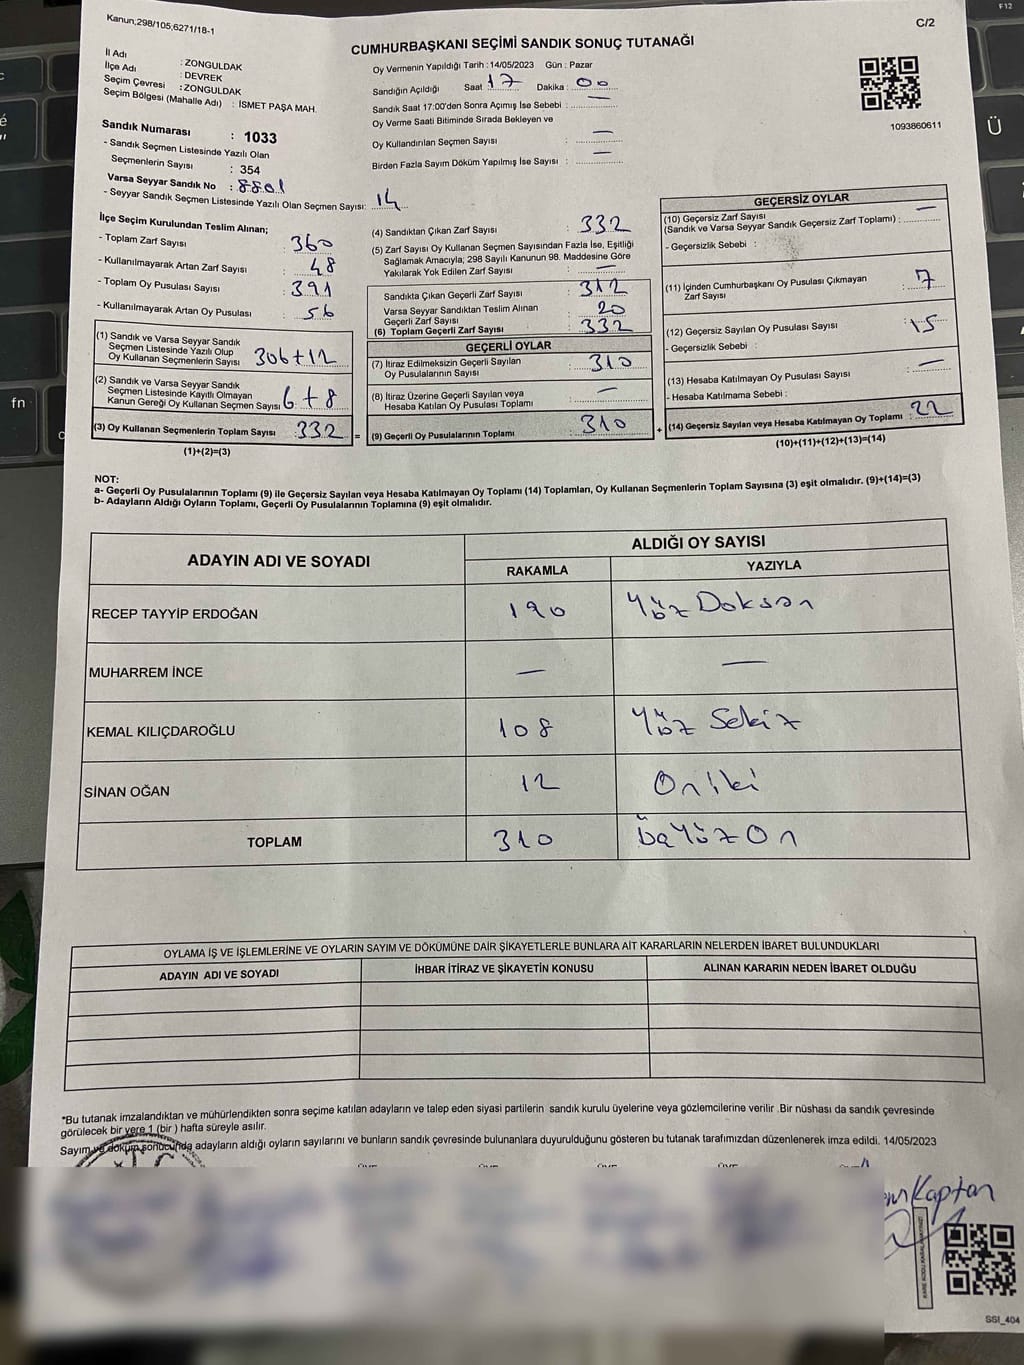 Kanun;298/105,6271/18-1
C/2
CUMHURBAŞKANI SEÇİMİ SANDIK SONUÇ TUTANAĞI
İl Adı : ZONGULDAK
İlçe Adı : DEVREK
Seçim Çevresi : ZONGULDAK
Seçim Bölgesi (Mahalle Adı) : İSMET PAŞA MAH.
Sandık Numarası : 1033
- Sandık Seçmen Listesinde Yazılı Olan
Seçmenlerin Sayısı : 354
Varsa Seyyar Sandık No : 8801
- Seyyar Sandık Seçmen Listesinde Yazılı Olan Seçmen Sayısı: 14
Oy Vermenin Yapıldığı Tarih : 14/05/2023 Gün : Pazar
Sandığın Açıldığı Saat : 17 Dakika : 00
Sandık Saat 17:00'den Sonra Açımış İse Sebebi : —
Oy Verme Saati Bitiminde Sırada Bekleyen ve
Oy Kullandırılan Seçmen Sayısı : —
Birden Fazla Sayım Döküm Yapılmış İse Sayısı : —
1093860611
İlçe Seçim Kurulundan Teslim Alınan;
- Toplam Zarf Sayısı : 360
- Kullanılmayarak Artan Zarf Sayısı : 48
- Toplam Oy Pusulası Sayısı : 391
- Kullanılmayarak Artan Oy Pusulası : 56
(1) Sandık ve Varsa Seyyar Sandık
Seçmen Listesinde Yazılı Olup
Oy Kullanan Seçmenlerin Sayısı 306+12
(2) Sandık ve Varsa Seyyar Sandık
Seçmen Listesinde Kayıtlı Olmayan
Kanun Gereği Oy Kullanan Seçmen Sayısı 6+8
(3) Oy Kullanan Seçmenlerin Toplam Sayısı 332 =
(1)+(2)=(3)
(4) Sandıktan Çıkan Zarf Sayısı : 332
(5) Zarf Sayısı Oy Kullanan Seçmen Sayısından Fazla İse, Eşitliği
Sağlamak Amacıyla; 298 Sayılı Kanunun 98. Maddesine Göre
Yakılarak Yok Edilen Zarf Sayısı : —
Sandıkta Çıkan Geçerli Zarf Sayısı : 312
Varsa Seyyar Sandıktan Teslim Alınan
Geçerli Zarf Sayısı : 20
(6) Toplam Geçerli Zarf Sayısı : 332
GEÇERLİ OYLAR
(7) İtiraz Edilmeksizin Geçerli Sayılan
Oy Pusulalarının Sayısı : 310
(8) İtiraz Üzerine Geçerli Sayılan veya
Hesaba Katılan Oy Pusulası Toplamı : —
(9) Geçerli Oy Pusulalarının Toplamı : 310 +
GEÇERSİZ OYLAR
(10) Geçersiz Zarf Sayısı
(Sandık ve Varsa Seyyar Sandık Geçersiz Zarf Toplamı) : —
- Geçersizlik Sebebi :
(11) İçinden Cumhurbaşkanı Oy Pusulası Çıkmayan
Zarf Sayısı : 7
(12) Geçersiz Sayılan Oy Pusulası Sayısı : 15
- Geçersizlik Sebebi :
(13) Hesaba Katılmayan Oy Pusulası Sayısı : —
- Hesaba Katılmama Sebebi :
(14) Geçersiz Sayılan veya Hesaba Katılmayan Oy Toplamı : 22
(10)+(11)+(12)+(13)=(14)
NOT:
a- Geçerli Oy Pusulalarının Toplamı (9) ile Geçersiz Sayılan veya Hesaba Katılmayan Oy Toplamı (14) Toplamları, Oy Kullanan Seçmenlerin Toplam Sayısına (3) eşit olmalıdır. (9)+(14)=(3)
b- Adayların Aldığı Oyların Toplamı, Geçerli Oy Pusulalarının Toplamına (9) eşit olmalıdır.
ADAYIN ADI VE SOYADI
ALDIĞI OY SAYISI
RAKAMLA YAZIYLA
RECEP TAYYİP ERDOĞAN 190 Yüz Doksan
MUHARREM İNCE — —
KEMAL KILIÇDAROĞLU 108 Yüz Sekiz
SİNAN OĞAN 12 Oniki
TOPLAM 310 ÜçYüzOn
OYLAMA İŞ VE İŞLEMLERİNE VE OYLARIN SAYIM VE DÖKÜMÜNE DAİR ŞİKAYETLERLE BUNLARA AİT KARARLARIN NELERDEN İBARET BULUNDUKLARI
ADAYIN ADI VE SOYADI İHBAR İTİRAZ VE ŞİKAYETİN KONUSU ALINAN KARARIN NEDEN İBARET OLDUĞU
*Bu tutanak imzalandıktan ve mühürlendikten sonra seçime katılan adayların ve talep eden siyasi partilerin sandık kurulu üyelerine veya gözlemcilerine verilir .Bir nüshası da sandık çevresinde
görülecek bir yere 1 (bir ) hafta süreyle asılır.
Sayım ve döküm sonucunda adayların aldığı oyların sayılarını ve bunların sandık çevresinde bulunanlara duyurulduğunu gösteren bu tutanak tarafımızdan düzenlenerek imza edildi. 14/05/2023
Kaptan
SSI_404
F12
Ü
é
fn